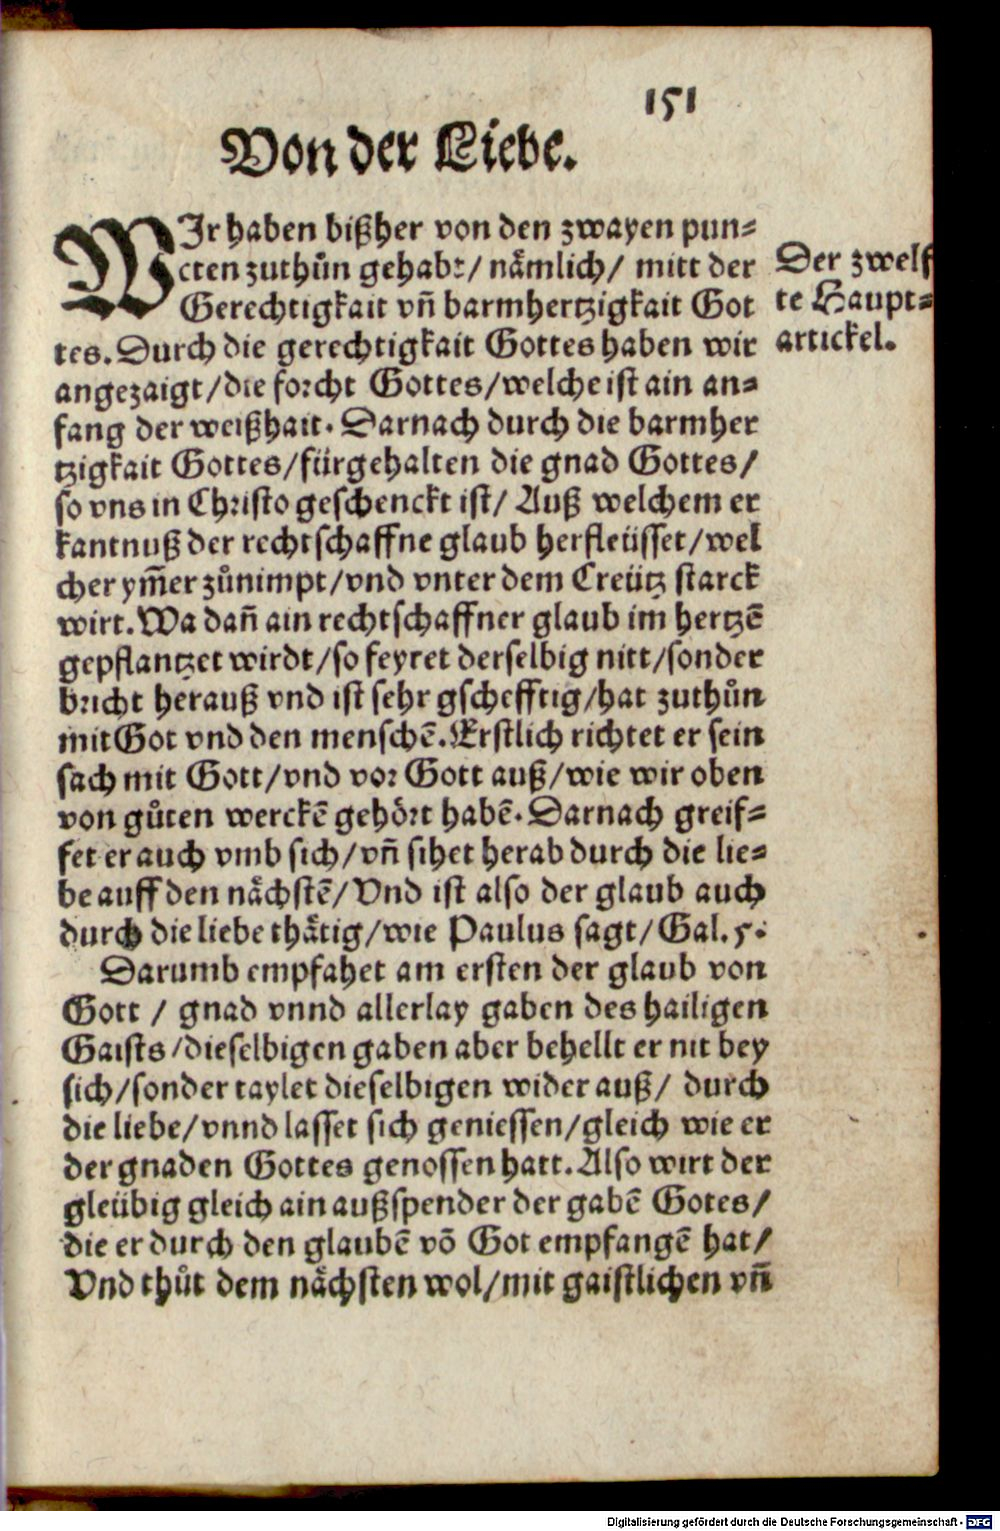 151
Von der Liebe.
WIr haben bißher von den zwayen pun⸗
cten zuthůn gehabt/ nämlich/ mitt der
Gerechtigkait vñ barmhertzigkait Got
tes. Durch die gerechtigkait Gottes haben wir
angezaigt/die forcht Gottes/welche ist ain an⸗
fang der weißhait. Darnach durch die barmher
tzigkait Gottes/fürgehalten die gnad Gottes/
so vns in Christo geschenckt ist/ Auß welchem er
kantnuß der rechtschaffne glaub herfleüsset/wel
cher ym̃er zůnimpt/vnd vnter dem Creütz starck
wirt. Wa dañ ain rechtschaffner glaub im hertzẽ
gepflantzet wirdt/so feyret derselbig nitt/sonder
bricht herauß vnd ist sehr gschefftig/hat zuthůn
mit Got vnd den menschẽ. Erstlich richtet er sein
sach mit Gott/vnd vor Gott auß/wie wir oben
von gůten werckẽ gehört habẽ. Darnach greif⸗
fet er auch vmb sich/vñ sihet herab durch die lie⸗
be auff den nächstẽ/ Vnd ist also der glaub auch
durch die liebe thätig/wie Paulus sagt/Gal. 5.
Darumb empfahet am ersten der glaub von
Gott / gnad vnnd allerlay gaben des hailigen
Gaists/dieselbigen gaben aber behellt er nit bey
sich/sonder taylet dieselbigen wider auß/ durch
die liebe/vnnd lasset sich geniessen/gleich wie er
der gnaden Gottes genossen hatt. Also wirt der
gleübig gleich ain außspender der gabẽ Gotes/
die er durch den glaubẽ võ Got empfangẽ hat/
Vnd thůt dem nächsten wol/mit gaistlichen vñ
Der zwelf
te Haupt⸗
artickel.
Digitalisierung gefördert durch die Deutsche Forschungsgemeinschaft - DFG